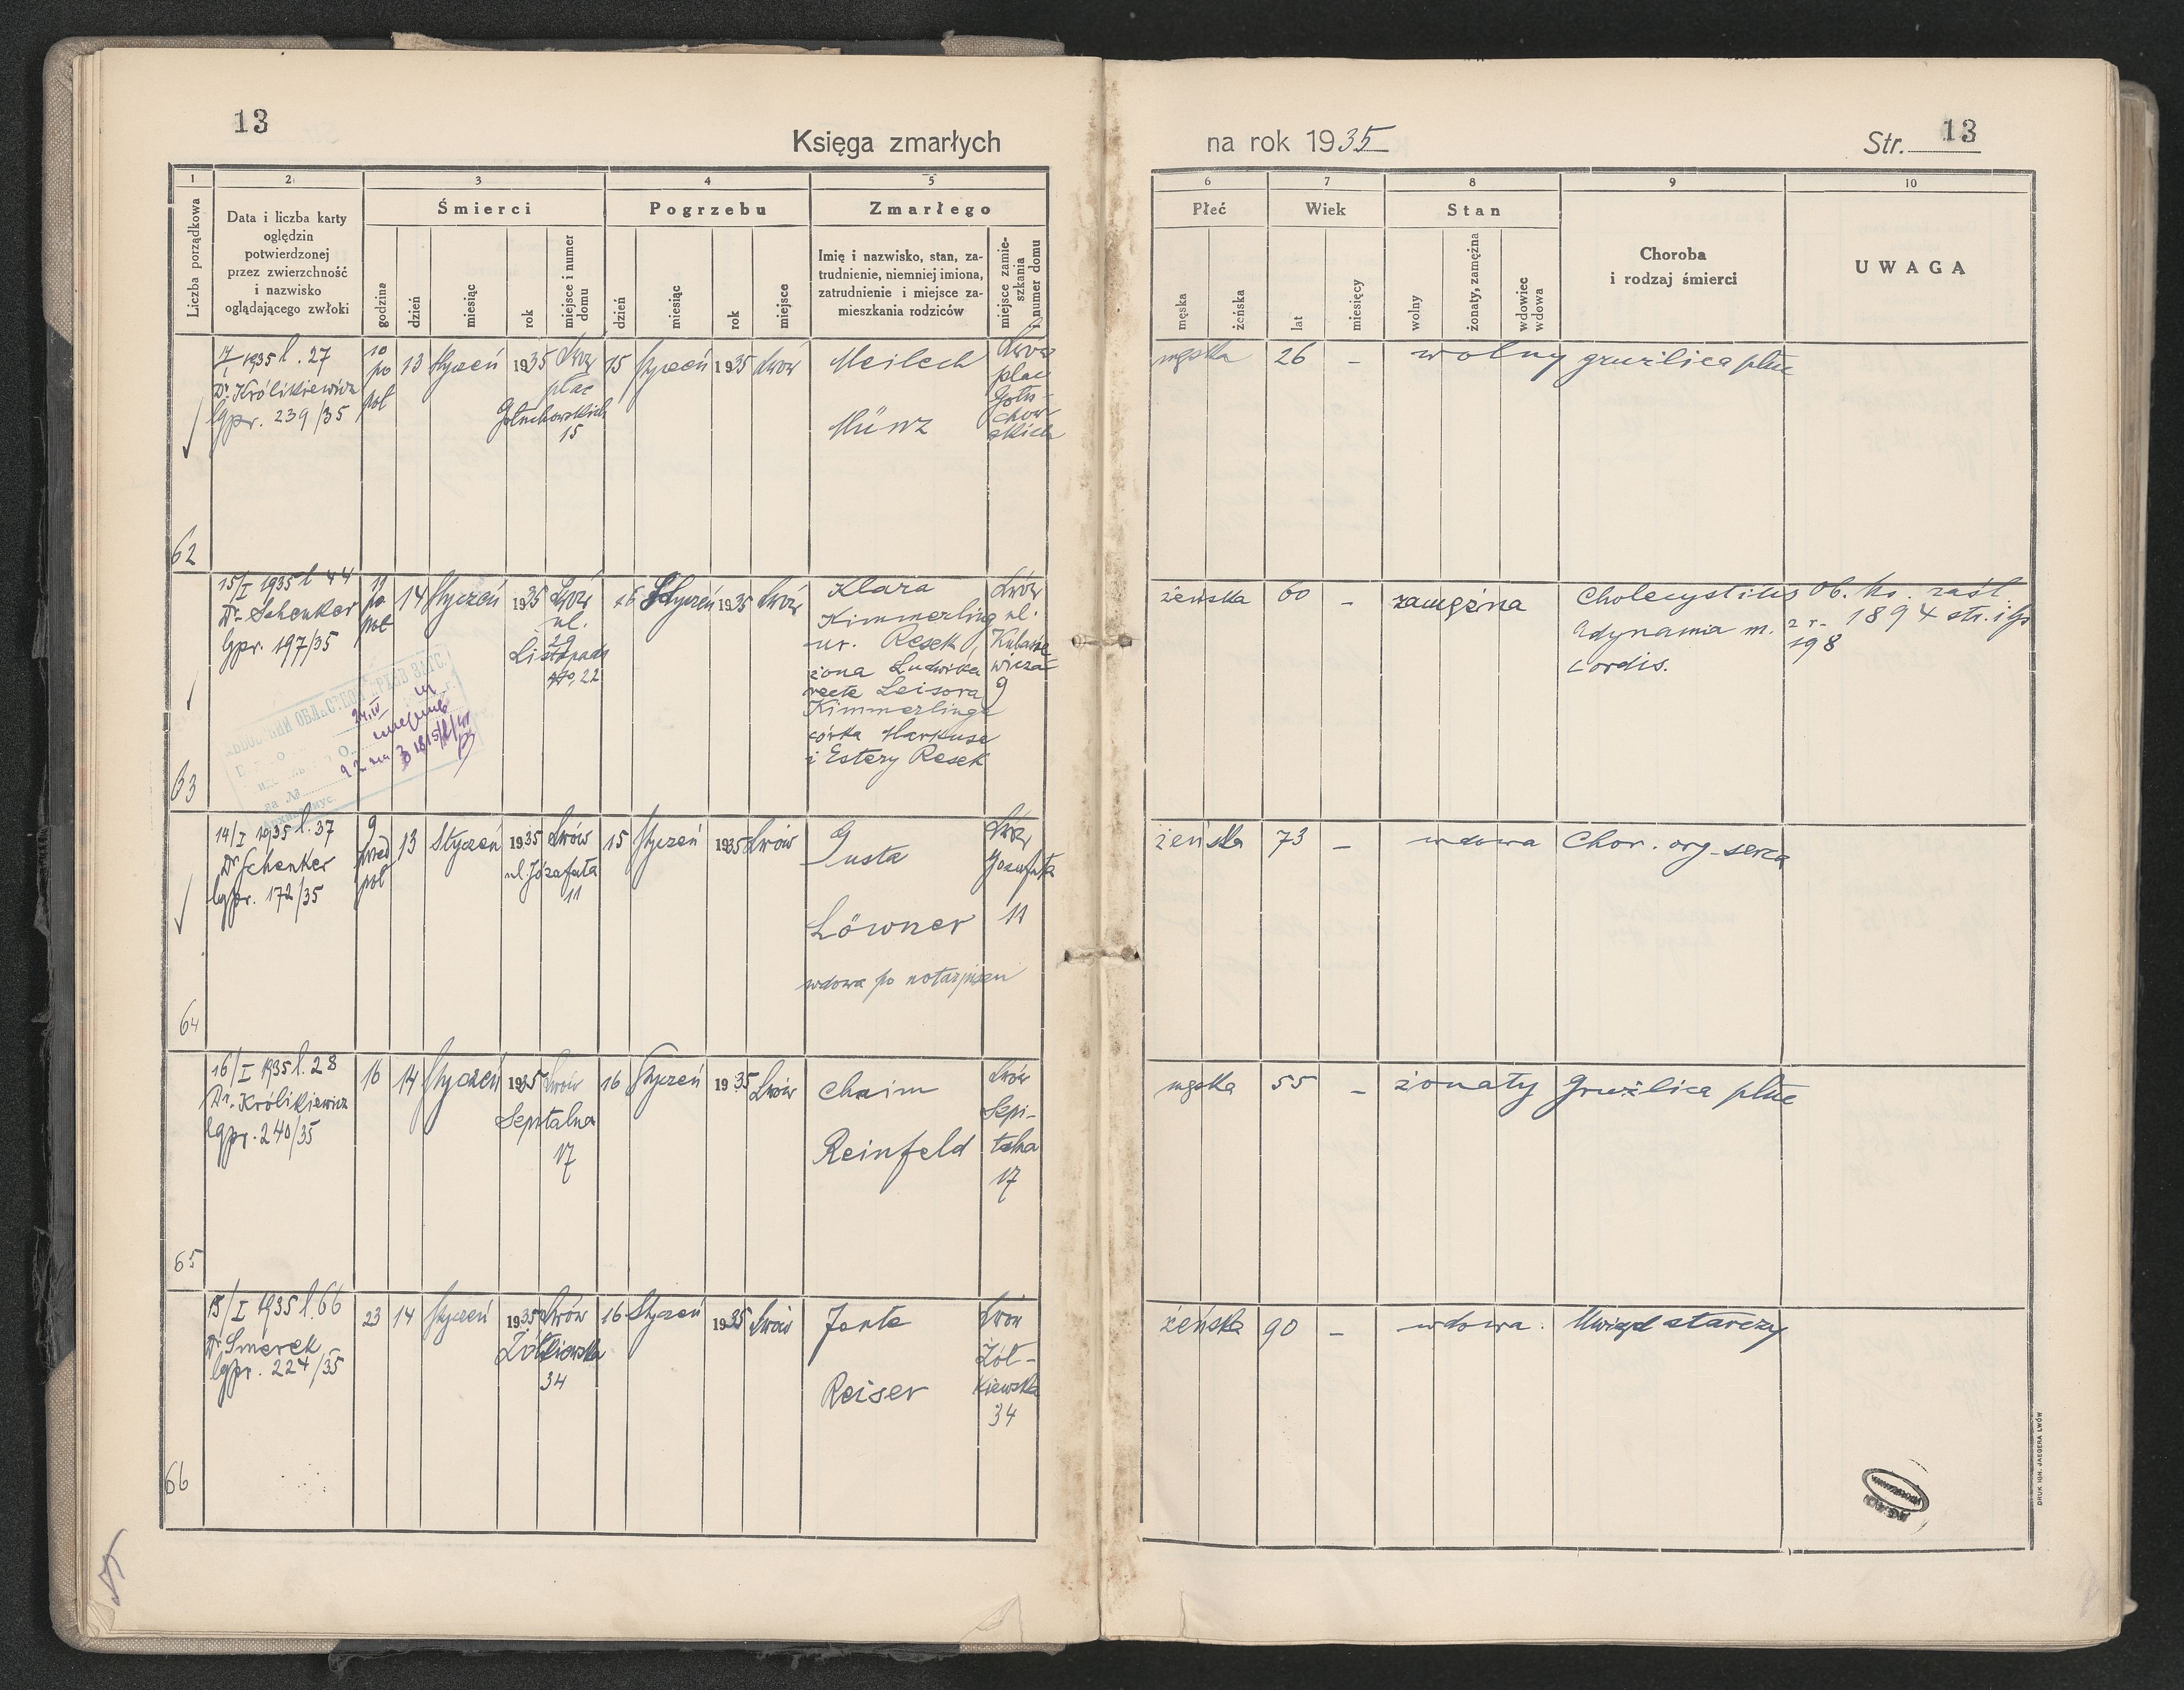 13
Księga zmarłych
na rok 1935
Str. 13
1
2
3
4
5
6
7
8
9
10
Liczba porządkowa
Data i liczba karty
oględzin
potwierdzonej
przez zwierzchność
i nazwisko
oglądającego zwłoki
Śmierci
godzina
dzień
miesiąc
rok
miejsce i numer
domu
Pogrzebu
dzień
miesiąc
rok
miejsce
Zmarłego
Imię i nazwisko, stan, za-
trudnienie, niemniej imiona,
zatrudnienie i miejsce za-
mieszkania rodziców
miejsce zamie-
szkania
i numer domu
Płeć
męska
żeńska
Wiek
lat
miesięcy
Stan
wolny
żonaty, zamężna
wdowiec
wdowa
Choroba
i rodzaj śmierci
UWAGA
62
1935 l. 27
Dr. Królikiewicz
lgpr. 239/35
10
po
poł
13
styczeń
1935
Lwów
plac
Gołuchowskich
15
15
styczeń
1935
Lwów
Meilech
Münz
Lwów
plac
Gołu-
chow-
skich
męska
26
-
wolny
gruźlica płuc
63
15/I 1935 l 44
Dr. Schenker
lgpr. 197/35
11
po
poł
14
styczeń
1935
Lwów
ul.
29
Listopada
22
16
Styczeń
1935
Lwów
Klara
Kimmerling
ur. Resek,
żona Ludwika
recte Leisora
Kimmerlinga
córka Markusa
i Estery Resek
Lwów
ul.
9
żeńska
60
-
zamężna
Cholecystitis
Adynamia m.
cordis.
Ob. ks. zaśl.
z r. 1894 str. i lp
198
64
14/I 1935 l. 37
Dr Schenker
lgpr. 172/35
9
przed
poł
13
Styczeń
1935
Lwów
ul. Józafata
11
15
styczeń
1935
Lwów
Gusta
Löwner
wdowa po
Lwów
Jozafata
11
żeńska
73
-
wdowa
Chor. org. serca
65
16/I 1935 l. 28
Dr. Królikiewicz
lgpr. 240/35
16
14
styczeń
1935
Lwów
Szpitalna
17
16
styczeń
1935
Lwów
Chaim
Reinfeld
Lwów
Szpi-
talna
17
męska
55
-
żonaty
Gruźlica płuc
66
15/I 1935 l. 66
Dr. Smerek
lgpr. 224/35
23
14
styczeń
1935
Lwów
Żółkiewska
34
16
Styczeń
1935
Lwów
Jente
Reiser
Lwów
Żół-
kiewska
34
żeńska
90
-
wdowa
Uwiąd starczy
DRUK IGN. JAEGERA LWÓW